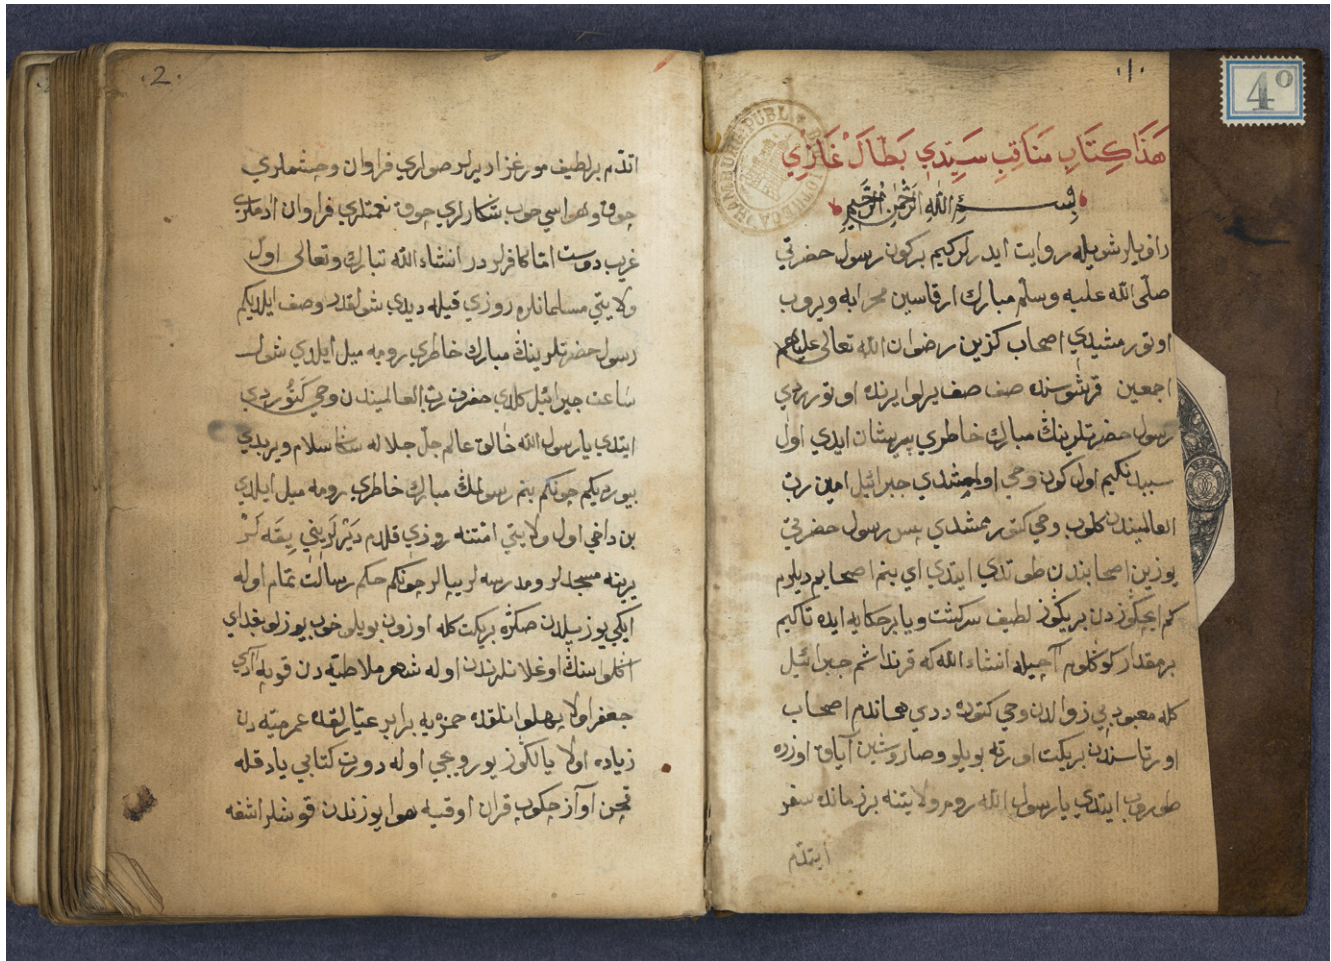 .١.
4º
BIBLIOTHECA HAMBURG PUBL
هَذَا كِتَابِ مَنَاقِبِ سَيِّدِي بَطَّالْ غَازِي
بِسْمِ اللهِ الرَّحْمٰنِ الرَّحِيمِ
راويلر شويله روايت ايدرلركيم بركون رسول حضرتي
صلّى الله عليه وسلّم مبارك ارقاسين محرابه ويروب
اوتورمشيدي اصحاب كزين رضوان الله تعالى عليهم
اجمعين قرشوسنده صف صف يرلو يرنده اوتورردي
رسول حضرتلرينڭ مبارك خاطري پريشان ايدي اول
سببدنكيم اول كون وحي اولمشدي جبرائيل امين ربّ
العالميندن كلوب وحي كتورمشدي پس رسول حضرتي
يوزين اصحابندن طوتدي ايتدي اي بنم اصحابم ديلرم
كم ايچكوزدن بريكوز لطيف سركشت ويا بر حكايه ايده تاكيم
برمقدار كوڭلوم آچيله انشاء الله كه قرنداشم جبرائيل
كله معبود بي زوالدن وحي كتوره ددي هماندم اصحاب
اورتاسندن بريكت اورته بويلو وصاروشين آياق اوزره
طوروب ايتدي يا رسول الله روم ولايتنه برزمانده سفر
ايتدم
.2.
اتدم برلطيف مورغزار ديرلر صولري فراوان وچشملري
چوق وهواسي خوب شكارلري چوق نعمتلري فراوان ادملري
غريب دوست امّا كافرلردر انشاء الله تبارك وتعالى اول
ولايتي مسلمانلره روزي قيله ديدي شولقدر وصف ايلديكم
رسول حضرتلرينڭ مبارك خاطري رومه ميل ايلدي شول
ساعت جبرائيل كلدي حضرت ربّ العالميندن وحي كتوردي
ايتدي يا رسول الله خالق عالم جلّ جلاله سڭا سلام ويربدي
بيوردیكم چونكم بنم رسولمڭ مبارك خاطري رومه ميل ايلدي
بن داخي اول ولايتي امّتنه روزي قلدم ديرلريني يقه لر
يرينه مسجدلر ومدرسه لر يپالر چونكم حكم رسالت تمام اوله
ايكي يوز ييلدن صكره بريكت كله اوزون بويلو خوب يوزلو بغداي
اڭلو سنڭ اوغلانلرندن اوله شهر ملاطيه دن قوپه آدي
جعفر اولا پهلوانلقده حمزه يه برابر عيّارلقده عمر ميّه دن
زياده اولا يالڭوز يوريجي اوله دورت كتابي ياد قله
قچن اواز چكوب قران اوقيه هوا يوزندن قوشلر اشغه